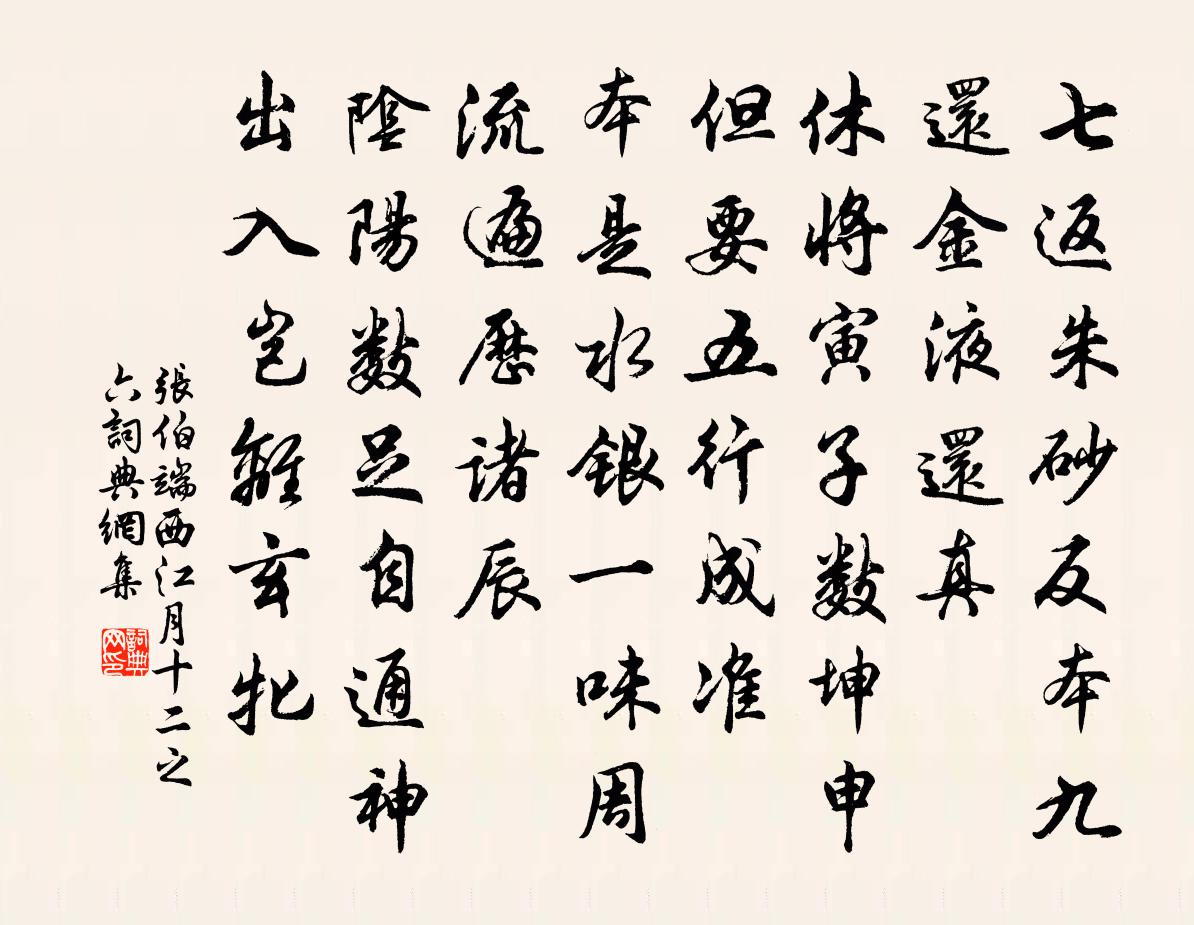 七返朱砂反本九
還金液還真
休將寅子數坤申
但要五行成准
本是水銀一味周
流遍歷諸辰
陰陽數足自通神
出入豈離玄牝
張伯端西江月十二之
六詞典網集
詞典网印